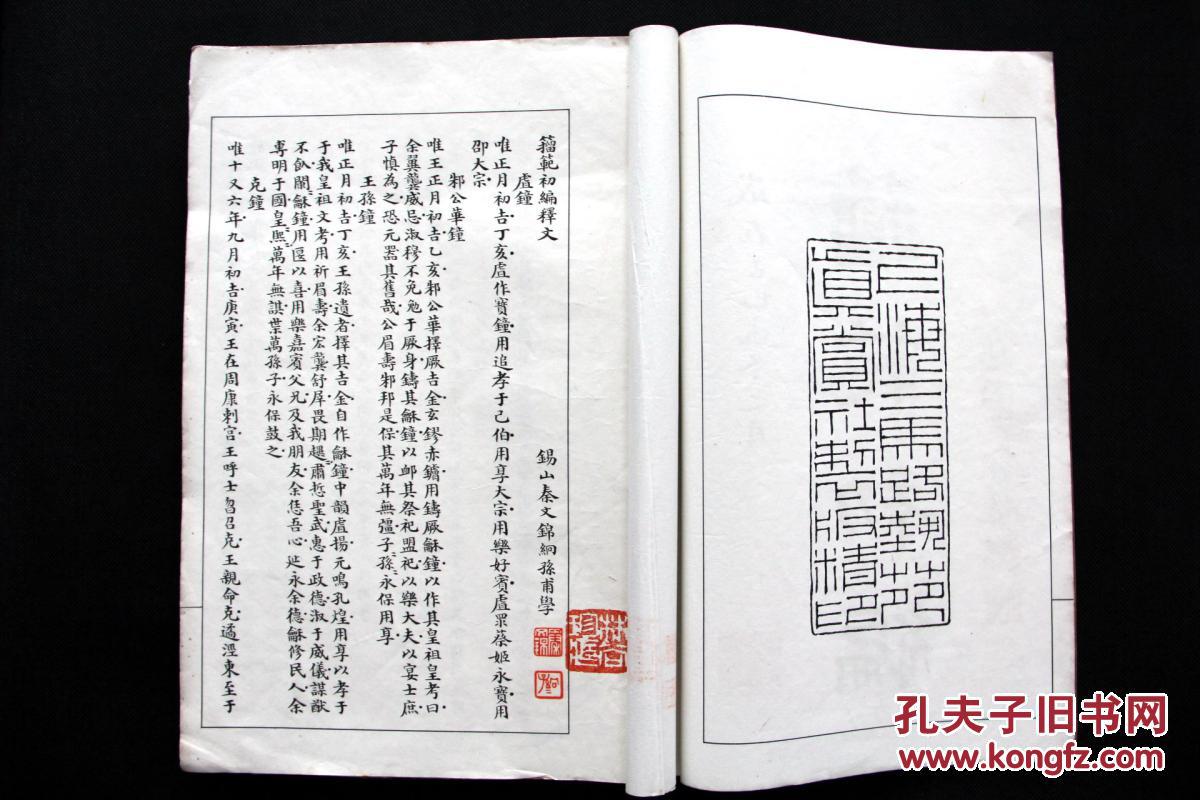 上海三馬路藝苑
真賞社製版精印
籀範初編釋文
錫山秦文錦絅孫甫學
虘鐘
唯正月初吉丁亥虘作寶鐘用追孝于己伯用享大宗用樂好賓虘眔蔡姬永寶用
邵大宗
邾公華鐘
唯王正月初吉乙亥邾公華擇厥吉金玄鏐赤鏞用鑄厥龢鐘以作其皇祖皇考曰
余翼龔威忌淑穆不免勉于厥身鑄其龢鐘以卹其祭祀盟祀以樂大夫以宴士庶
子慎為之恐元器其舊哉公眉壽邾邦是保其萬年無彊子孫永保用享
王孫鐘
唯正月初吉丁亥王孫遺者擇其吉金自作龢鐘中韻虘揚元鳴孔煌用享以孝于
于我皇祖文考用祈眉壽余宏龔舒屖畏期趩肅悊聖武惠于政德淑于威儀謀猷
不飤闌龢鐘用匽以喜用樂嘉賓父兄及我朋友余恁吾心延永余德龢修民人余
專明于國皇熙萬年無諆枼萬孫子永保鼓之
克鐘
唯十又六年九月初吉庚寅王在周康剌宮王呼士曶召克王親命克遹涇東至于
孔夫子旧书网
www.kongfz.com